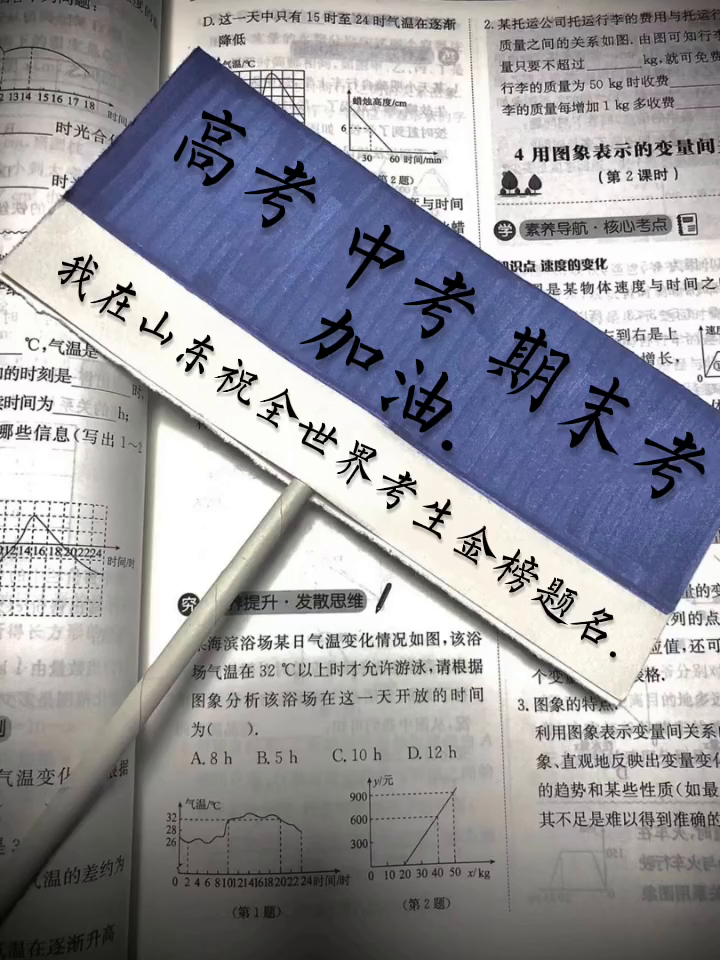 高考 中考 期末考
加油.
我在山东祝全世界考生金榜题名.
D. 这一天中只有 15 时至 24 时气温在逐渐
降低
气温/℃
蜡烛高度/cm
6
30 60 时间/min
第2题)
12 13 14 15 16 17 18 时间
时光合
℃,气温是
的时刻是 时,
时间为 h;
哪些信息(写出 1~2
012141618202224 时间/时
气温变化
气温的差约为
气温在逐渐升高
养提升·发散思维
海滨浴场某日气温变化情况如图,该浴
场气温在 32 ℃以上时才允许游泳,请根据
图象分析该浴场在这一天开放的时间
为( ).
A. 8 h B. 5 h C. 10 h D. 12 h
气温/℃
32
28
26
0 2 4 6 8 10 12 14 16 18 20 22 24 时间/时
(第1题)
y/元
900
600
300
0 10 20 30 40 50 x/kg
(第2题)
2. 某托运公司托运行李的费用与托运行
质量之间的关系如图. 由图可知行李
量只要不超过 kg,就可免费
行李的质量为 50 kg 时收费
李的质量每增加 1 kg 多收费
4 用图象表示的变量间
(第2课时)
学 素养导航·核心考点
识点 速度的变化
是某物体速度与时间之
左到右是上
增长,
列的点
应值,还可
个变 表格.
3. 图象的特点
利用图象表示变量间关系
象、直观地反映出变量变化
的趋势和某些性质(如最
其不足是难以得到准确的